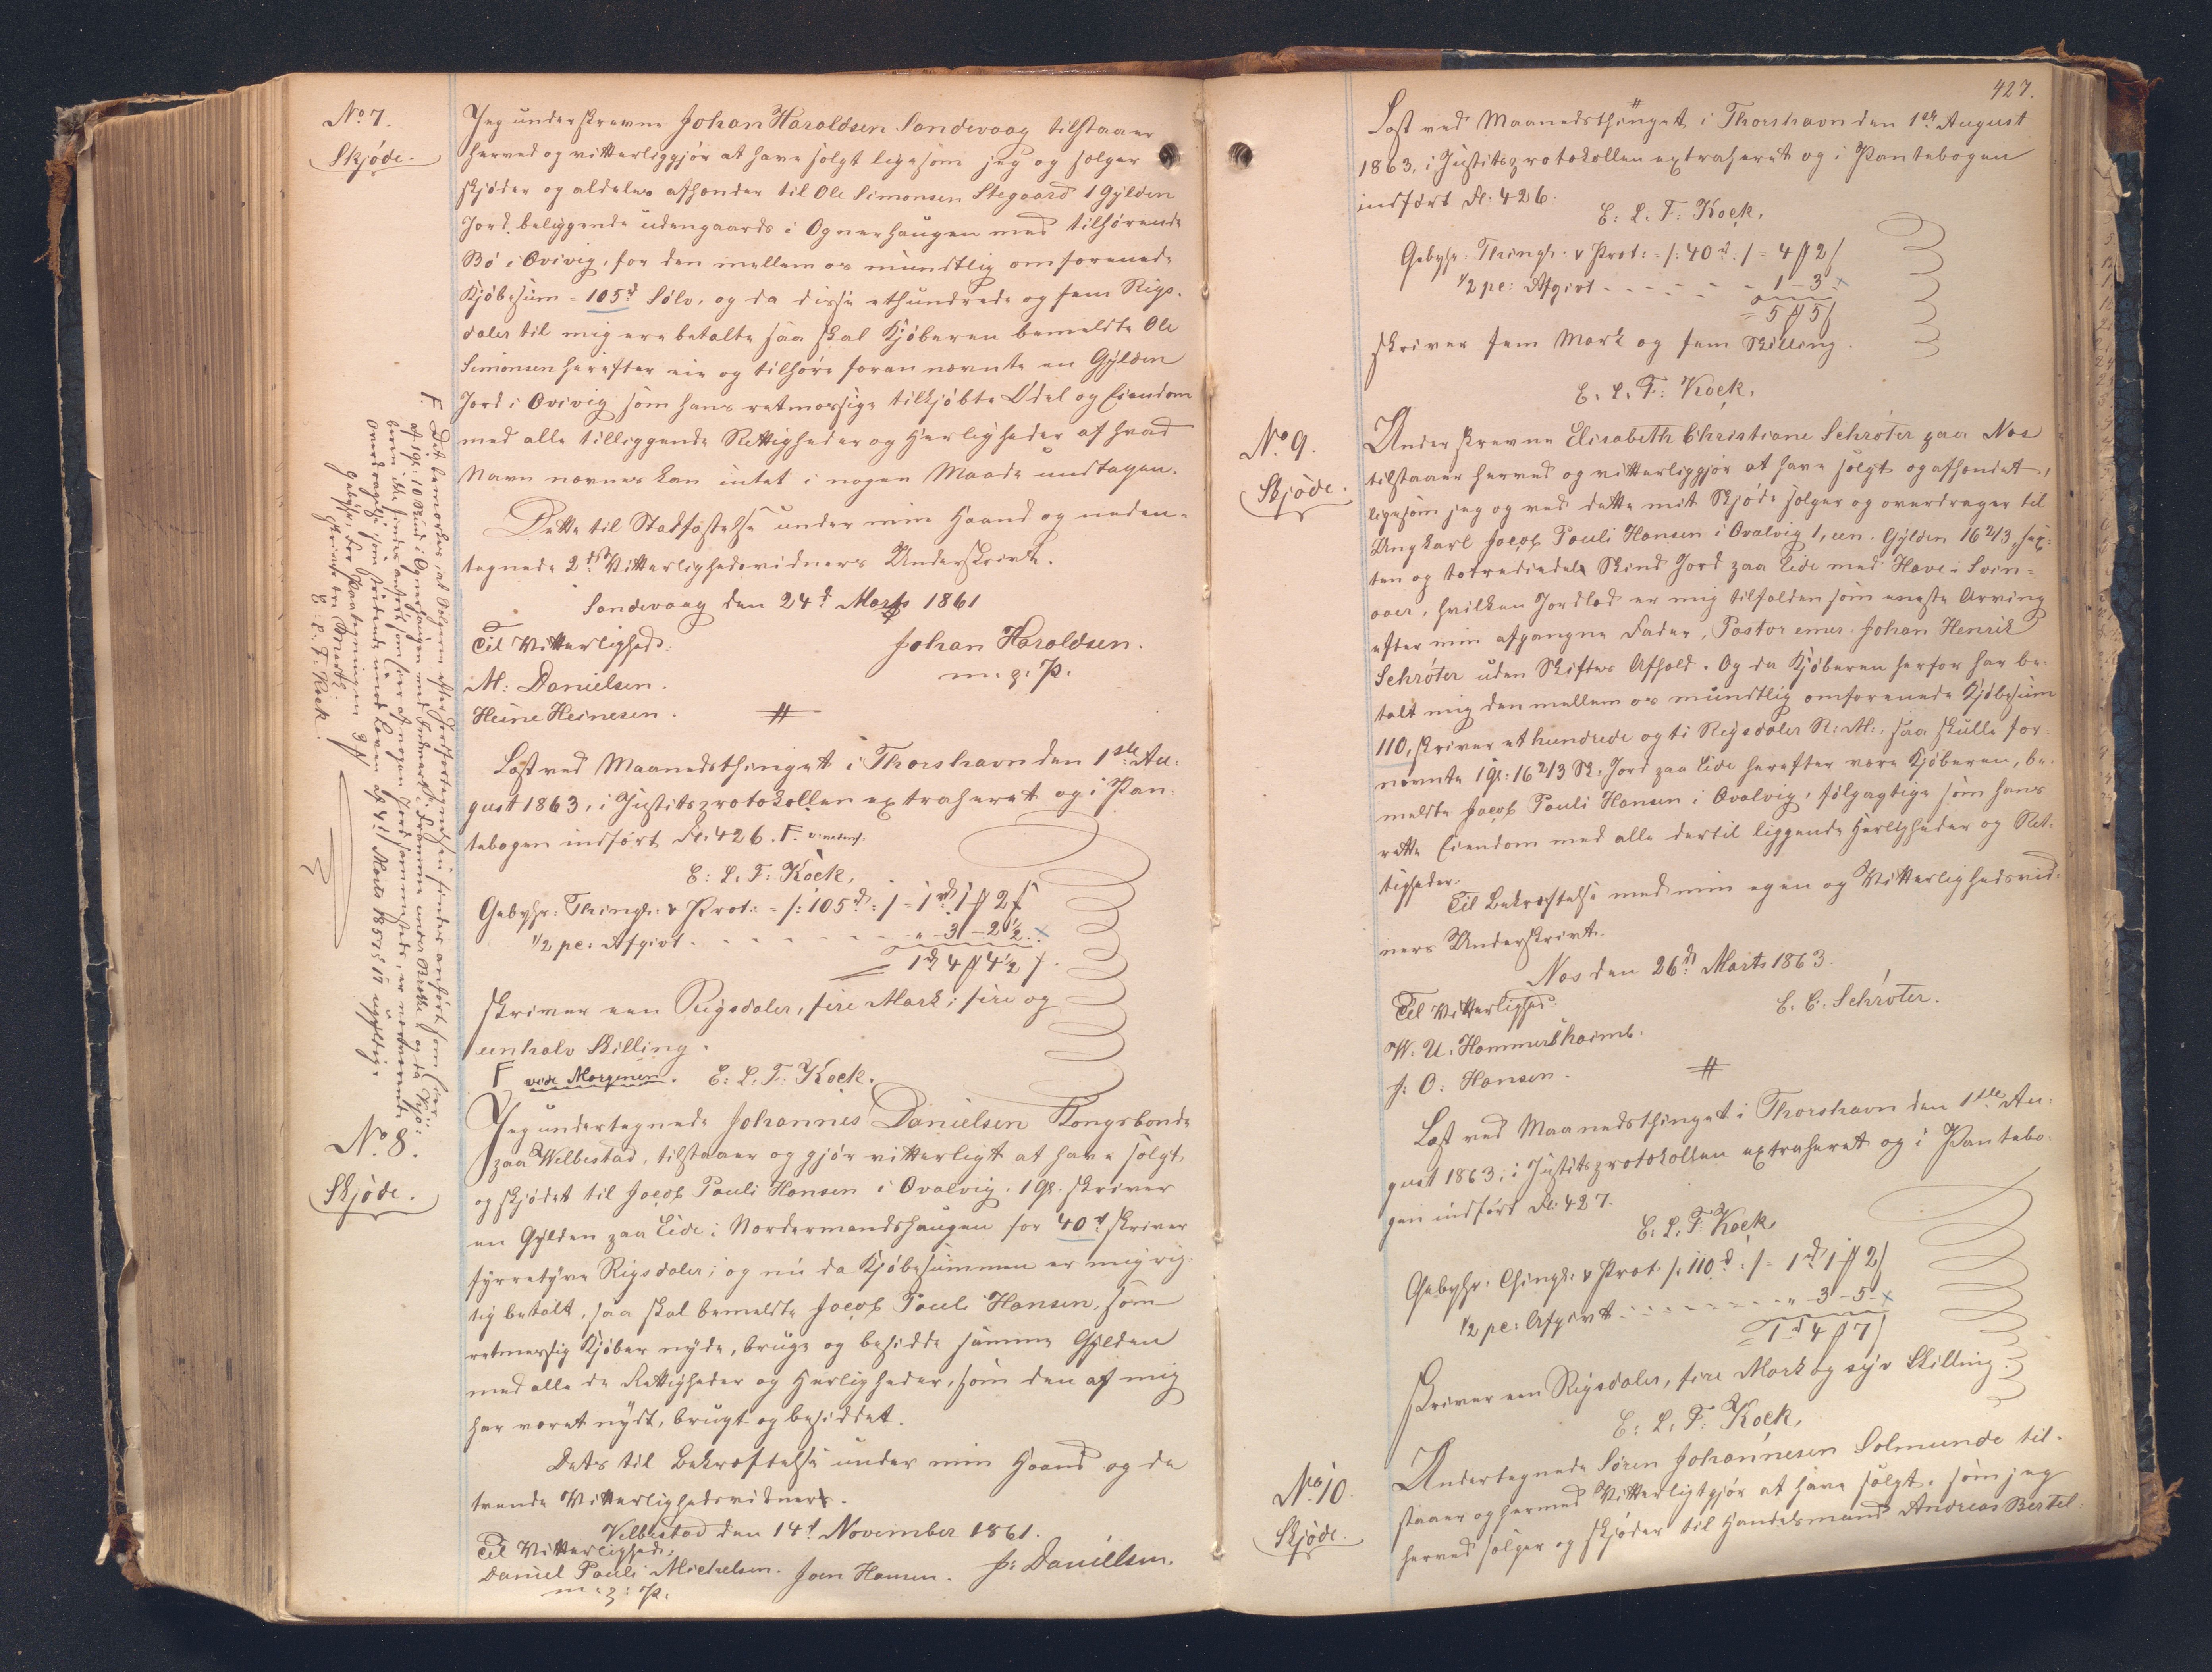 No 7.
Skjöde.
Jeg underskrevne Johan Haraldsen Sandevaag tilstaaer
herved og vitterliggjör at have solgt ligesom jeg og sælger
skjöder og aldeles afhænder til Ole Simonsen Stegaard 1 Gylden
Jord beliggende udengaards i Ognerhaugen med tilhörende
Bö i Qvivig, for den mellem os mündtlig omforenede
Kjöbesum = 105rd Sölv, og da disse ethundrede og fem Rigs-
daler til mig ere betalte saa skal Kjöberen bemeldte Ole
Simonsen herefter eie og tilhöre forannævnte en Gylden
Jord i Qvivig som hans retmæssige tilkjöbte Odel og Eiendom
med alle tilliggende Rettigheder og Herligheder af hvad
Navn nævnes kan intet i nogen Maade undtagen.
Dette til Stadfæstelse under min Haand og neden-
tegnede 2de Vitterlighedsvidners Underskrivt.
Sandevaag den 24d Marts 1861
Til Vitterlighed. Johan Haraldsen.
M: Danielsen. m. g. P.
Heine Heinesen.
Læst ved Maanedsthinget i Thorshavn den 1ste Au-
gust 1863, i Justitsprotokollen extraheret og i Pan-
tebogen indfört Fl. 426. F.
E: L: F: Kock.
Gebyhr: Thingl: & Prot: = /: 105rd :/ = 1rd 1 ß 2 ſ
1/2 pc: Afgivt - - - - - - " - 3 - 2 1/2. x
= 1rd 4 ß 4 1/2 ſ.
skriver een Rigsdaler, fire Mark, fire og
eenhalv Skilling.
F vide Margenen. E: L: F: Kock.
F. Det bemærkes, at Sælgeren efter Jordfortegnelsen findes anfört som Eier
af 1 Gl: 10 Skind i Ognerhaugen med Indmark i hommen under Brekke & og da Kjö-
beren ikke findes anfört som Eier af nogen Jord sammesteds, er nærværende
Overdragelse som stridende mod Loven af 4de Marts 1857 § 17 ugyldig.
Gebyhr: for Paategningen 3 ß
skriver tre Mark.
E: L: F: Kock.
No 8.
Skjöde.
Jeg undertegnede Johannes Danielsen Kongsbonde
paa Welbestad, tilstaaer og gjör vitterligt at have solgt
og skjödet til Jacob Pauli Hansen i Qvalvig. 1 Gl. skriver
en Gylden paa Eide i Nordermandshaugen for 40rd skriver
fyrretyve Rigsdaler; og nu da Kjöbesummen er mig rig-
tig betalt, saa skal bemeldte Jacob Pauli Hansen, som
retmæssig Kjöber nyde, bruge og besidde samme Gylden
med alle de Rettigheder og Herligheder, som den af mig
har været nydt, brugt og besiddet.
Dets til Bekræftelse under min Haand og de
tvende Vitterlighedsvidners.
Velbestad den 14d November 1861.
Til Vitterlighed:
Daniel Pauli Michelsen. Joen Hansen. J: Danielsen.
m: g: P.
427.
Læst ved Maanedsthinget i Thorshavn den 1ste August
1863, i Justitsprotokollen extraheret og i Pantebogen
indfört Fl: 426.
E: L: F: Kock.
Gebyhr: Thingl: & Prot: = /: 40rd :/ = 4 ß 2 ſ
1/2 pc: Afgivt - - - - - - 1 - 3 x
= 5 ß 5 ſ
skriver fem Mark og fem Skilling.
E: L: F: Kock.
No 9.
Skjöde.
Underskrevne Elisabeth Christiane Schröter paa Næs
tilstaaer herved og vitterliggjör at have solgt og afhændet,
ligesom jeg og ved dette mit Skjöde sælger og overdrager til
Ungkarl Jacob Pauli Hansen i Qvalvig 1, een Gylden 16 2/3, sex-
ten og totrediedele Skind Jord paa Eide med Have i Svin-
aaer, hvilken Jordlod er mig tilfalden som eneste Arving
efter min afgangne Fader, Pastor emer. Johan Henrik
Schröter uden Skiftes Afhold. Og da Kjöberen herfor har be-
talt mig den mellem os mundtlig omforenede Kjöbesum
110, skriver et hundrede og ti Rigsdaler R: M:, saa skulle for-
nævnte 1 Gl: 16 2/3 Sk. Jord paa Eide herefter være Kjöberen, be-
meldte Jacob Pauli Hansen i Qvalvig, fölgagtige som hans
rette Eiendom med alle dertil liggende Herligheder og Ret-
tigheder.
Til Bekræftelse med min egen og Vitterlighedsvid-
ners Underskrivt.
Næs den 26d Marts 1863.
Til Vitterlighed: E. C. Schröter.
W. U. Hammershaimb.
J: O: Hansen.
Læst ved Maanedsthinget i Thorshavn den 1ste Au-
gust 1863, i Justitsprotokollen extraheret og i Pantebo-
gen indfört Fl: 427.
E: L: F: Kock.
Gebyhr: Thingl: & Prot /: 110rd :/ = 1rd 1 ß 2 ſ
1/2 pc: Afgivt - - - - - - " - 3 - 5 - x
= 1rd 4 ß 7 ſ
skriver een Rigsdaler, fire Mark og syv Skilling.
E: L: F: Kock.
No 10.
Skjöde.
Undertegnede Sören Johannesen Solmunde til-
staaer og hermed Vitterligtgjör at have solgt, som jeg
herved sælger og skjöder til Handelsmand Andreas Bertel-